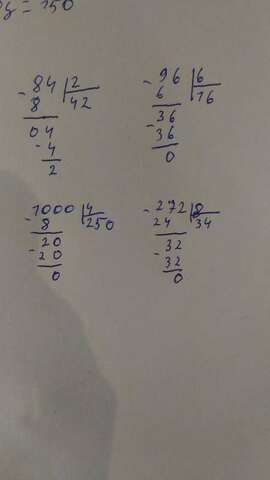 y = 150
- 84 | 2
8 | 42
04
- 4
2
- 96 | 6
6 | 16
36
- 36
0
- 1000 | 4
8 | 250
20
- 20
0
- 272 | 8
24 | 34
32
- 32
0